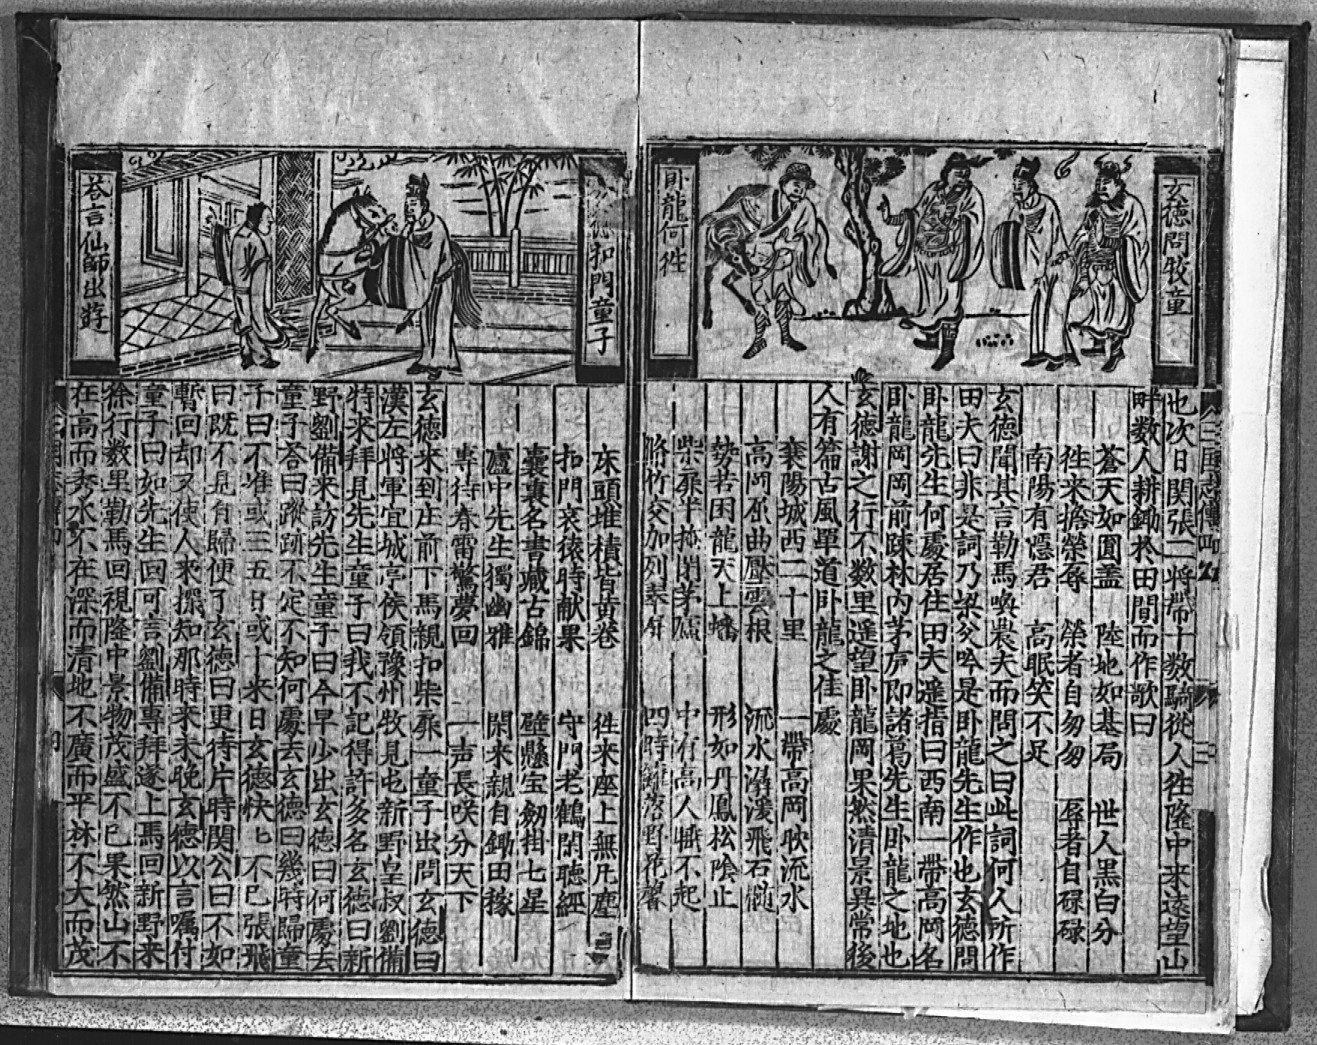 玄德問牧童
臥龍何徃
也次日関張二將帶十数騎從人徃隆中来遠望山
畔数人耕鋤於田間而作歌曰
蒼天如圓盖　陸地如棊局　世人黒白分
徃来搶榮辱　榮者自匆匆　辱者自碌碌
南陽有隱君　高眠笑不足
玄德聞其言勒馬喚農夫而問之曰此詞何人所作
田夫曰非是詞乃梁父吟是卧龍先生作也玄德問
卧龍先生何處居住田夫遥指曰西南一帶高岡名
卧龍岡岡前疎林内茅庐即諸葛先生卧龍之地也
玄德謝之行不数里遥望卧龍岡果然清景異常後
人有篇古風單道卧龍之佳處
襄陽城西二十里　一帶高岡映流水
高岡屈曲壓雲根　流水潺湲飛石髓
勢若困龍天上蟠　形如丹鳳松隂止
柴扉半掩閉茅廬　中有高人懶不起
脩竹交加列翠屏　四時籬落野花馨
床頭堆積皆黄卷　徃来座上無凡塵
扣門哀猿時献果　守門老鶴閑聴經
囊裏名書藏古錦　壁懸宝劔掛七星
廬中先生獨幽雅　閑来親自鋤田稼
專待春雷驚夢回　一声長嘆分天下
玄德来到庄前下馬親扣柴扉一童子出問玄德曰
漢左將軍宜城亭侯領豫州牧見屯新野皇叔劉備
特来拜見先生童子曰我不記得許多名玄德曰新
野劉備来訪先生童子曰今早少出玄德曰何處去
童子荅曰蹤跡不定不知何處去玄德曰幾時歸童
子曰不准或三五日或十来日玄德怏匕不已張飛
曰既不見自歸便了玄德曰更待片時関公曰不如
暫回却又使人来探知那時来未晚玄德以言嘱付
童子曰如先生回可言劉備專拜遂上馬回新野来
徐行数里勒馬回視隆中景物茂盛不已果然山不
在高而秀水不在深而清地不廣而平林不大而茂
扣門童子
荅言仙師出遊
三國志傳